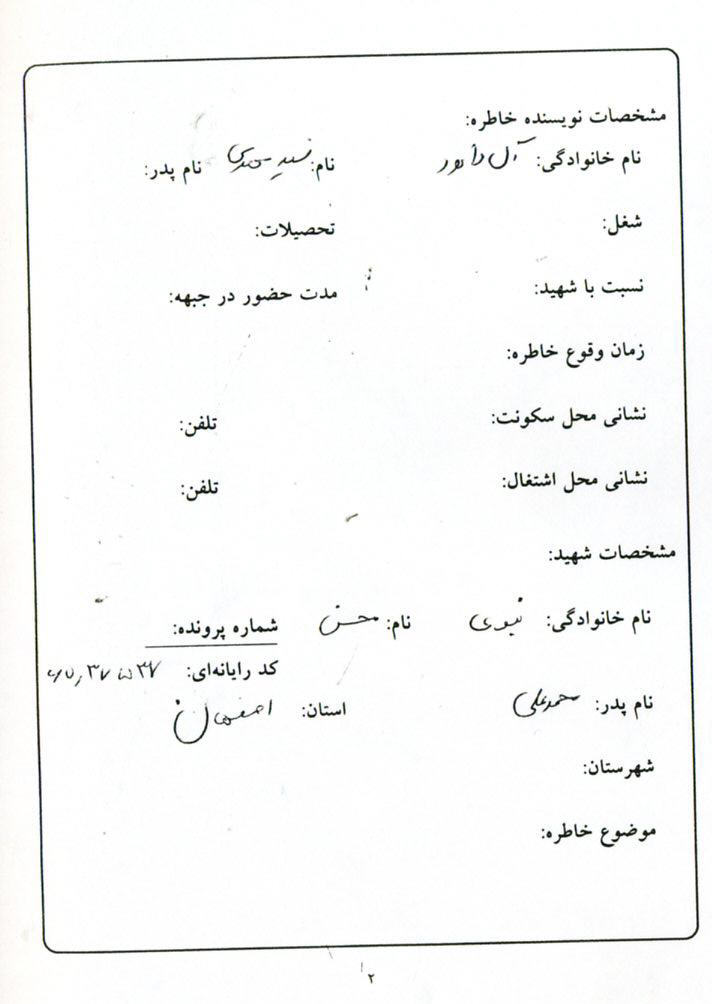 مشخصات نویسنده خاطره:
نام خانوادگی: آل داود نام: سید مهدی نام پدر:
شغل: تحصیلات:
نسبت با شهید: مدت حضور در جبهه:
زمان وقوع خاطره:
نشانی محل سکونت: تلفن:
نشانی محل اشتغال: تلفن:
مشخصات شهید:
نام خانوادگی: نام: محسن شماره پرونده:
کد رایانه‌ای:
نام پدر: محمدعلی استان: اصفهان
شهرستان:
موضوع خاطره:
۲